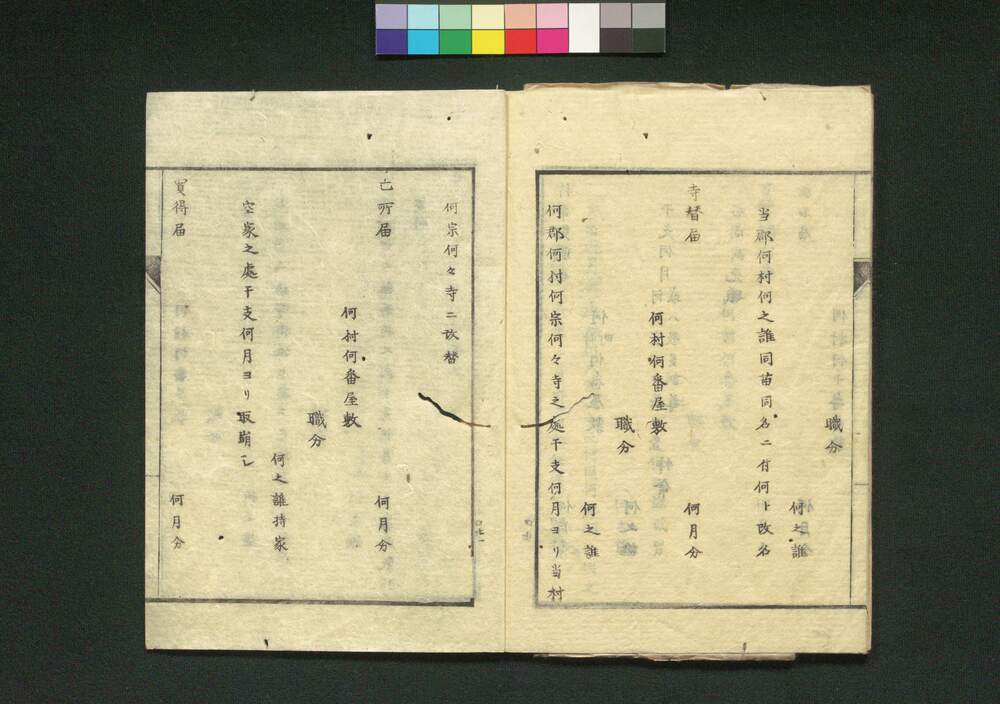 職分
何之誰
当郡何村何之誰同苗同名ニ付何ト改名
寺替届
何月分
何村何番屋敷
職分
何之誰
何郡何村何宗何々寺之處干支何月ヨリ当村
何宗何々寺ニ改替
亡所届
何月分
何村何番屋敷
職分
何之誰持家
空家之處干支何月ヨリ取崩シ
買得届
何月分